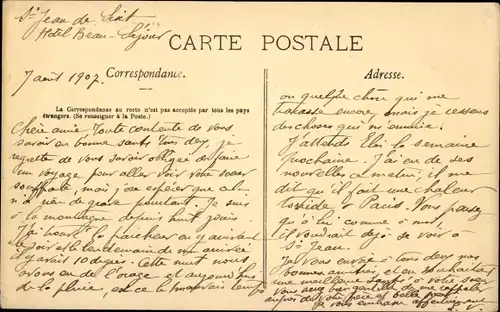 St Jean de
Hôtel Beau-Séjour
CARTE POSTALE
7 août 1907.
Correspondance.
Adresse.
La Correspondance au recto n'est pas acceptée par tous les pays
étrangers. (Se renseigner à la Poste.)
Chère amie Toute contente de vous
savoir en bonne santé tous deux, je
regrette de vous savoir obligée de faire
un voyage pour aller voir votre sœur
souffrante, mais j'ose espérer que ce
n'a rien de grave pourtant. Je suis
à la montagne depuis huit jours
J'ai trouvé la fraîcheur en y arrivant
le soir et le lendemain de mon arrivée
il y avait 10 degrés. Cette nuit nous
avons eu de l'orage et aujourd'hui
de la pluie, est-ce le mauvais temps
ou quelque chose qui me
tracasse encore, mais je ressens
des choses qui m'ennuie.
J'attends la semaine
prochaine. J'ai eu de ses
nouvelles ce matin, il me
dit qu'il fait une chaleur
torride à Paris. Vous pensez
qu'à lui comme à moi
il voudrait déjà se voir à
St Jean.
Je vous envoie à tous deux mes
bonnes amitiés, et en souhaitant
une meilleure santé à votre sœur
vous serez bien gentille de me rappeler
auprès de votre père et belle
je vous embrasse affectueusement